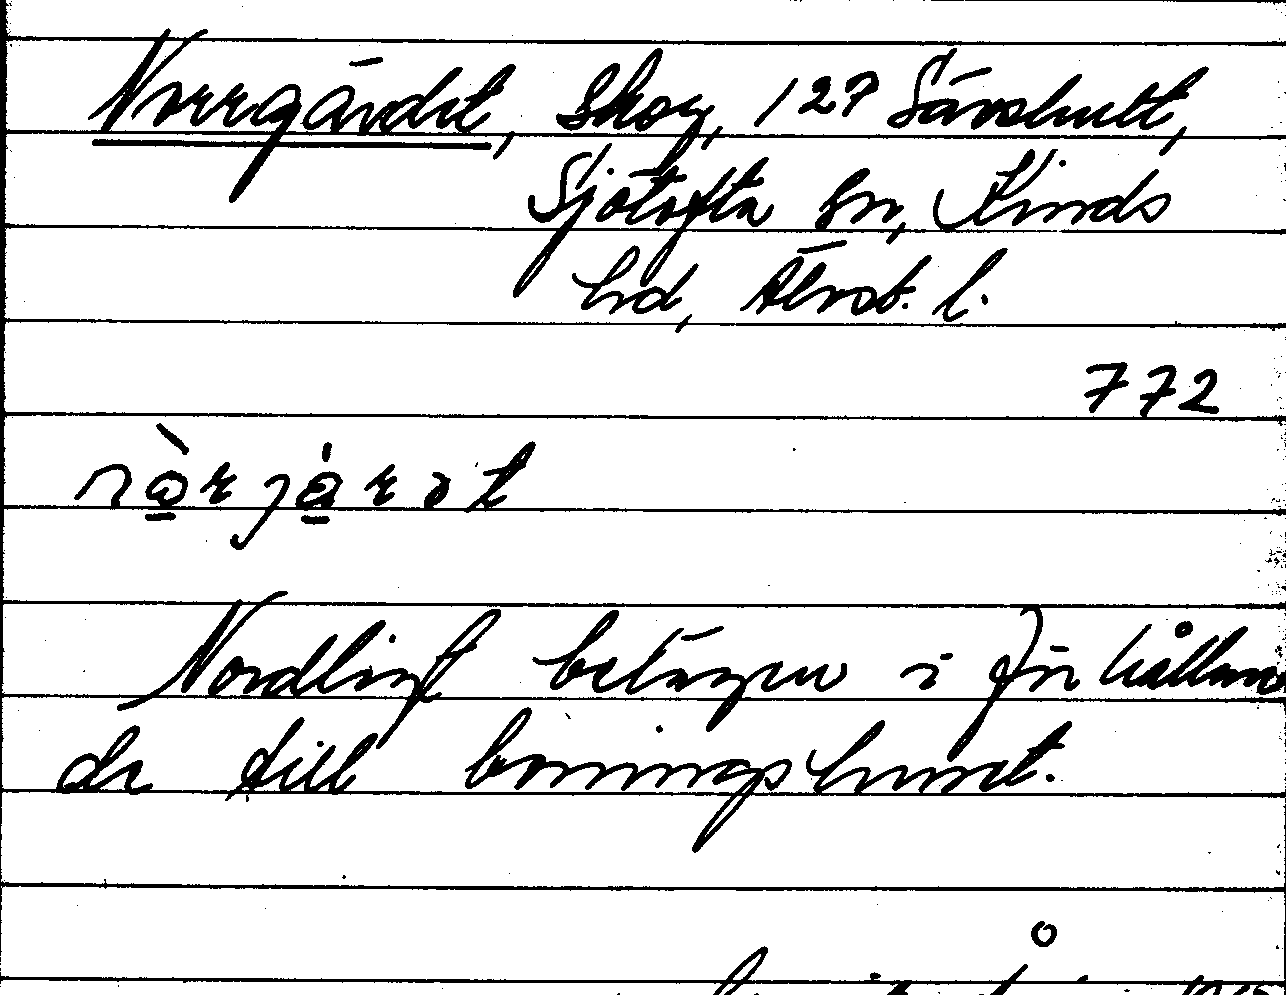 Norrgärdet, Skog, 127 Sävshult,
Sjötofta sn, Kinds
hd, Älvsb. l.
772
Nordligt belägen i förhållan
de till boningshuset.